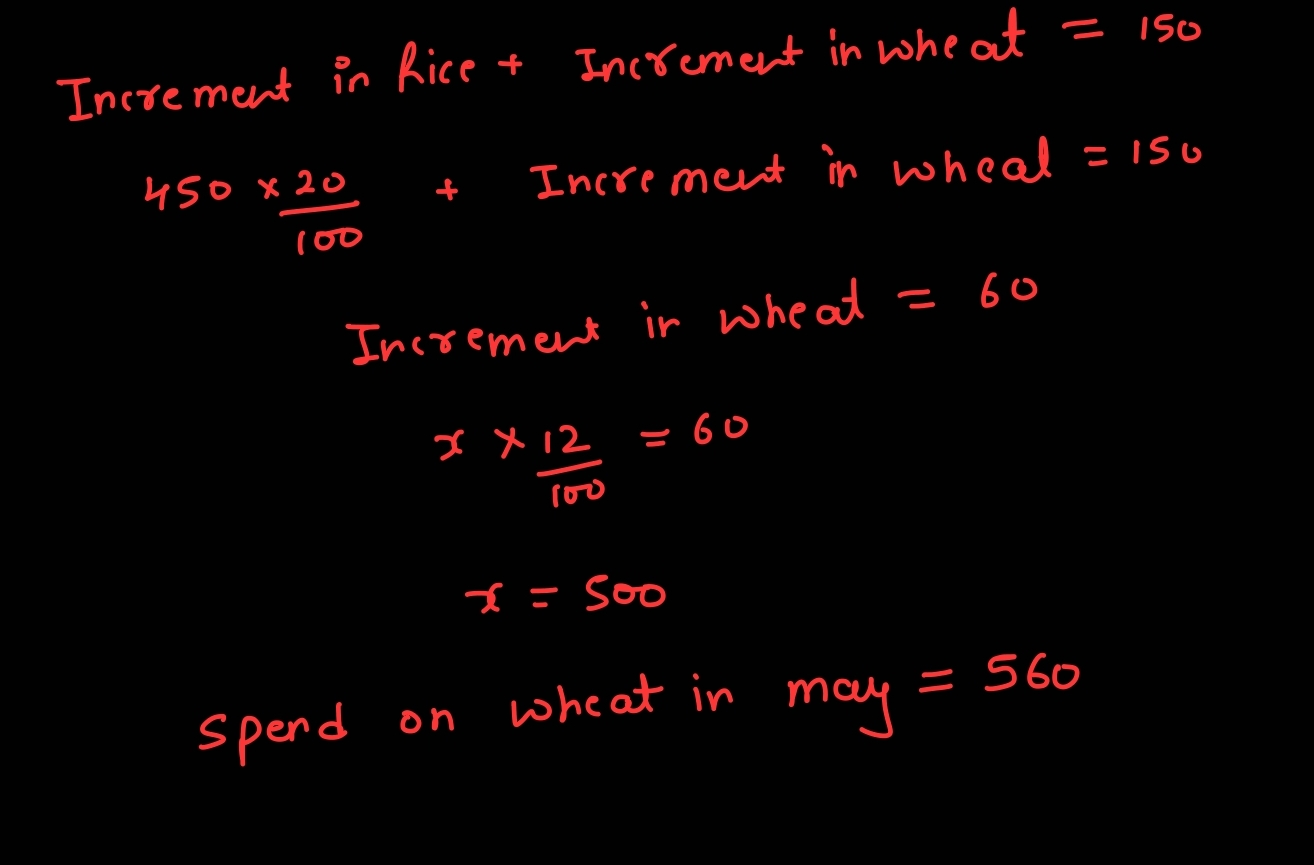 Increment in Rice + Increment in wheat = 150
450 × 20/100 + Increment in wheat = 150
Increment in wheat = 60
x × 12/100 = 60
x = 500
Spend on wheat in may = 560